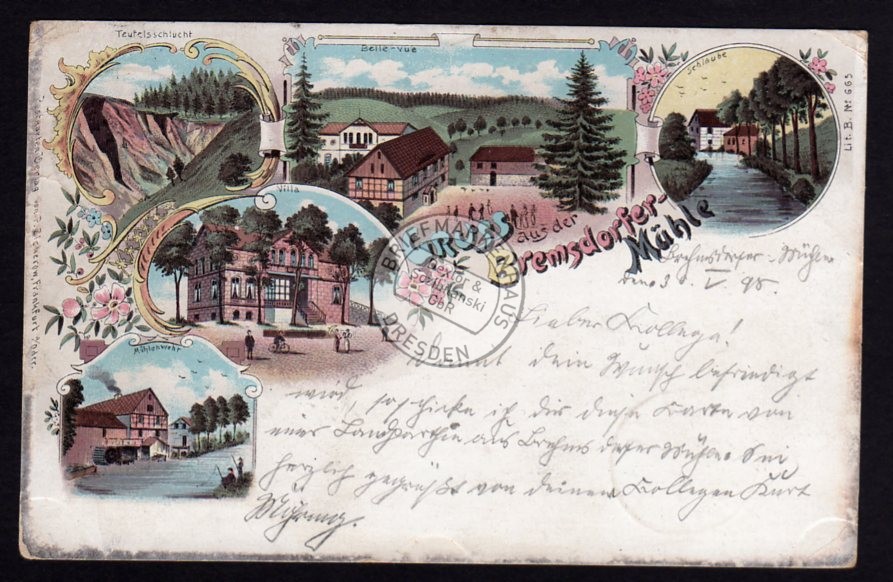 Teufelsschlucht
Belle-vue
Schlaube
Lit. B. No 665
Villa
Mühlenwehr
Gruss aus der
Bremsdorfer-
Mühle
BRIEFMARKENHAUS
DRESDEN
& GbR
Brehmsdorfer-Mühle
den 3 V. 98.
Lieber Kollege!
Damit dein Wunsch befriedigt
wird, so schicke ich dir diese Karte von
einer Landparthie aus Brehmsdorfer Mühle. Sei
herzlich gegrüßt von deinem Kollegen Kurt